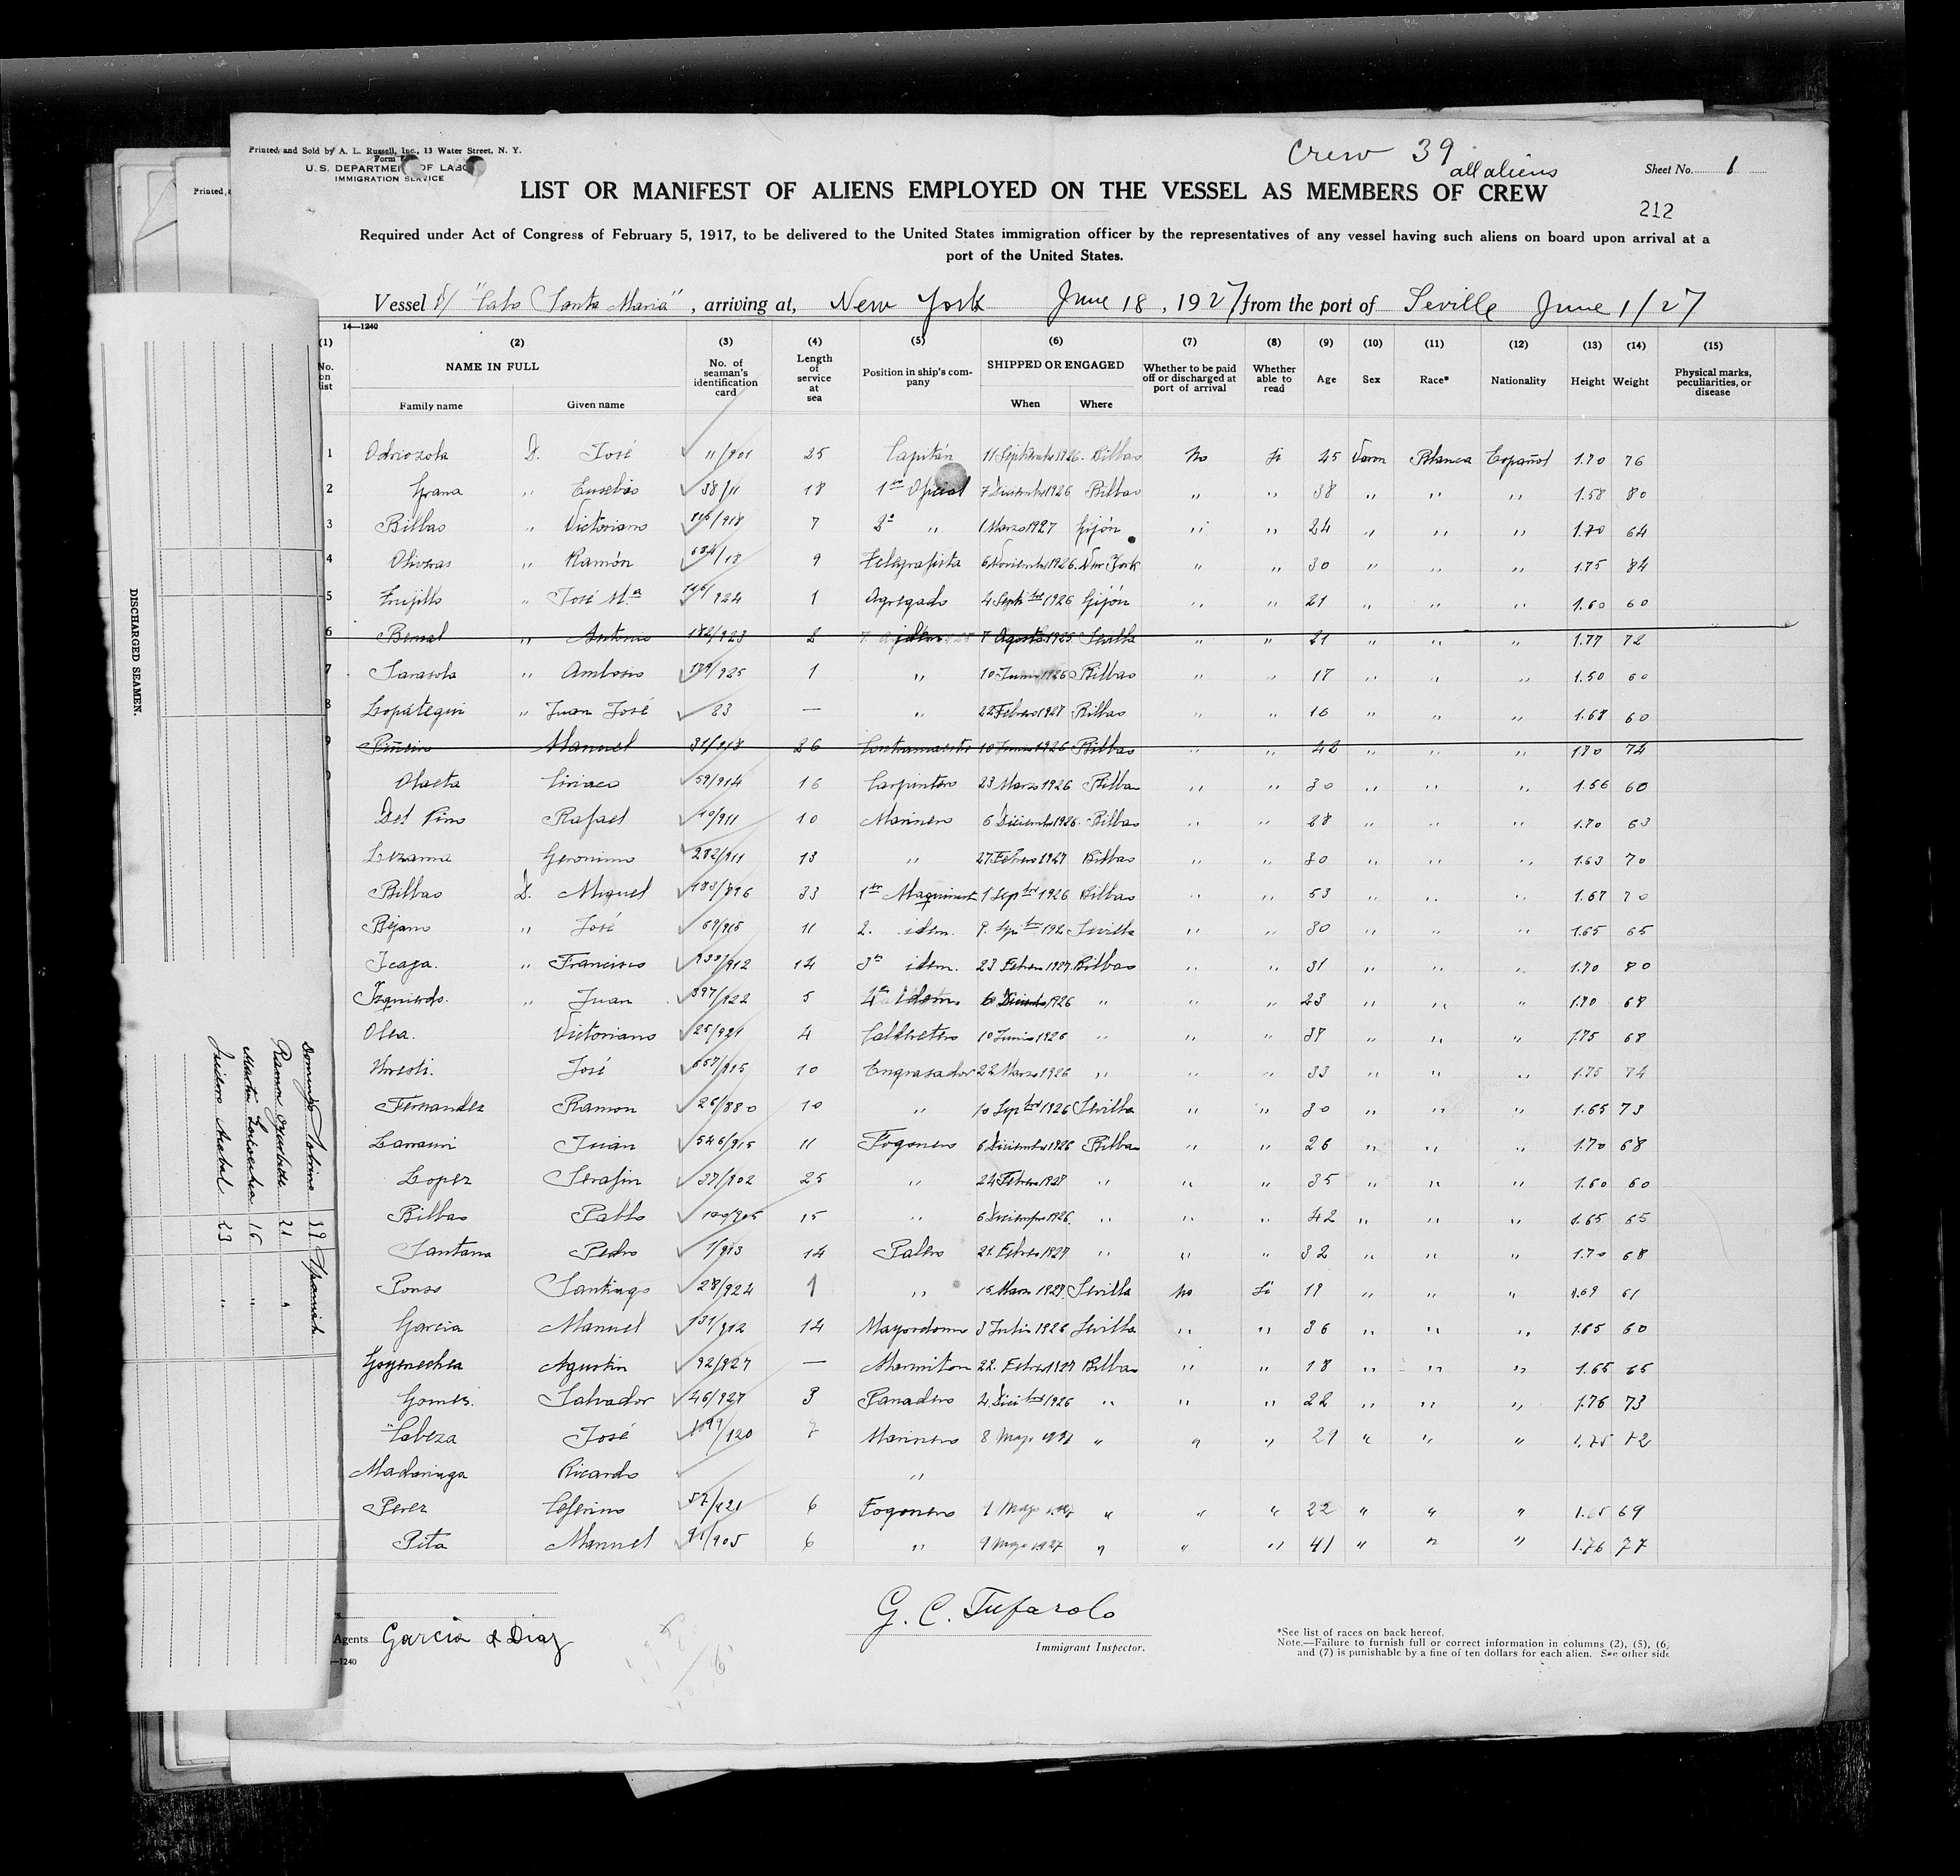 Printed and Sold by A. L. Russell, Inc., 13 Water Street, N. Y.
Form
U. S. DEPARTMENT OF LABOR
IMMIGRATION SERVICE
Crew 39
all aliens
Sheet No. 1
LIST OR MANIFEST OF ALIENS EMPLOYED ON THE VESSEL AS MEMBERS OF CREW
212
Required under Act of Congress of February 5, 1917, to be delivered to the United States immigration officer by the representatives of any vessel having such aliens on board upon arrival at a
port of the United States.
Vessel S/ "Cabo Santa Maria", arriving at, New York June 18, 1927 from the port of Seville June 1/27
14—1240
(1) (2) (3) (4) (5) (6) (7) (8) (9) (10) (11) (12) (13) (14) (15)
No. on list NAME IN FULL Family name Given name No. of seaman's identification card Length of service at sea Position in ship's company SHIPPED OR ENGAGED When Where Whether to be paid off or discharged at port of arrival Whether able to read Age Sex Race* Nationality Height Weight Physical marks, peculiarities, or disease
1 Odriozola D. José 11/901 25 Capitán 11 Septiembre 1926. Bilbao No Si 45 Varon Blanca Español 1.70 76
2 Grana " Eusebio 38/11 18 1er Oficial 7 Diciembre 1926 Bilbao " " 38 " " " 1.58 80
3 Bilbao " Victoriano /918 7 2º " 1 Marzo 1927 Gijón " " 24 " " " 1.70 64
4 Oliveras " Ramón 684/18 9 Telegrafista 6 Noviembre 1926. New York " " 30 " " " 1.75 84
5 Trujillo " José Mª /924 1 Agregado 4 Septbre 1926 Gijón " " 21 " " " 1.60 60
6 Bernal " Antonio 182/923 2 idem 7 Agosto 1925 Sevilla " " 21 " " " 1.77 72
7 Sarasola " Ambosio 179/925 1 " 10 Junio 1926 Bilbao " " 17 " " " 1.50 60
8 Lopátegui " Juan José 83 — " 22 Febrero 1927 Bilbao " " 16 " " " 1.68 60
9 Piñeiro Manuel 31/918 26 Contramaestre 10 Junio 1926 Bilbao " " 42 " " " 1.70 74
Olaeta Ciriaco 59/914 16 Carpintero 23 Marzo 1926 Bilbao " " 30 " " " 1.56 60
Del Pino Rafael 10/911 10 Marinero 6 Diciembre 1926. Bilbao " " 28 " " " 1.70 63
Lezama Geronimo 282/911 13 " 27 Febrero 1927 Bilbao " " 30 " " " 1.63 70
Bilbao D. Miguel 183/896 33 1er Maquinista 1 Septbre 1926 Bilbao " " 53 " " " 1.67 70
Bejano " José 69/915 11 2. idem. 9. Septbre 192 Sevilla " " 30 " " " 1.65 65
Icaza. " Francisco /912 14 3er idem. 23 Febrero 1927. Bilbao " " 31 " " " 1.70 80
Izquierdo. " Juan 397/922 5 4º idem 6 Diciembre 1926 " " " 23 " " " 1.70 68
Olea. Victoriano 25/921 4 Calderetero 10 Junio 1926 " " " 37 " " " 1.75 68
Uresti. José 657/915 10 Engrasador 22 Marzo 1926 " " " 33 " " " 1.75 74
Fernandez Ramon 26/880 10 " 10 Septbre 1926 Sevilla " " 30 " " " 1.65 73
Larrauri Juan 546/915 11 Fogonero 6 Diciembre 1926 Bilbao " " 26 " " " 1.70 68
Lopez Serafin 37/902 25 " 24 Febrero 1927 " " " 35 " " " 1.60 60
Bilbao Pablo 100/905 15 " 6 Diciembre 1926. " " " 42 " " " 1.65 65
Santana Pedro 1/913 14 Palero 21. Febrero 1927 " " " 32 " " " 1.70 68
Ponso Santiago 28/924 1 " 15 Marzo 1927. Sevilla No Si 19 " " " 1.69 61
Garcia Manuel 131/912 14 Mayordomo 3 Julio 1926 Sevilla " " 36 " " " 1.65 60
Goyenechea Agustin 92/927 — Marmiton 22. Febrero 1927 Bilbao " " 18 " " " 1.65 65
Gomez. Salvador 46/927 3 Panadero 2. Dicbre 1926 " " " 22 " " " 1.76 73
Cabeza José /120 7 Marinero 8 Mayo 1927 " " " 29 " " " 1.75 82
Madariaga Ricardo "
Perez Ceferino 57/921 6 Fogonero 1 Mayo 1927 " " " 22 " " " 1.65 69
Pita Manuel 91/905 6 " 9 Mayo 1927 " " " 41 " " " 1.76 77
Agents Garcia & Diaz
—1240
G. C. Tufarolo
Immigrant Inspector.
*See list of races on back hereof.
Note.—Failure to furnish full or correct information in columns (2), (5), (6)
and (7) is punishable by a fine of ten dollars for each alien. See other side
DISCHARGED SEAMEN.
Domingo Sobrino 19 Spanish
Ramon 21 "
Martin 16 "
Isidoro Arabal 23 "
Printed,